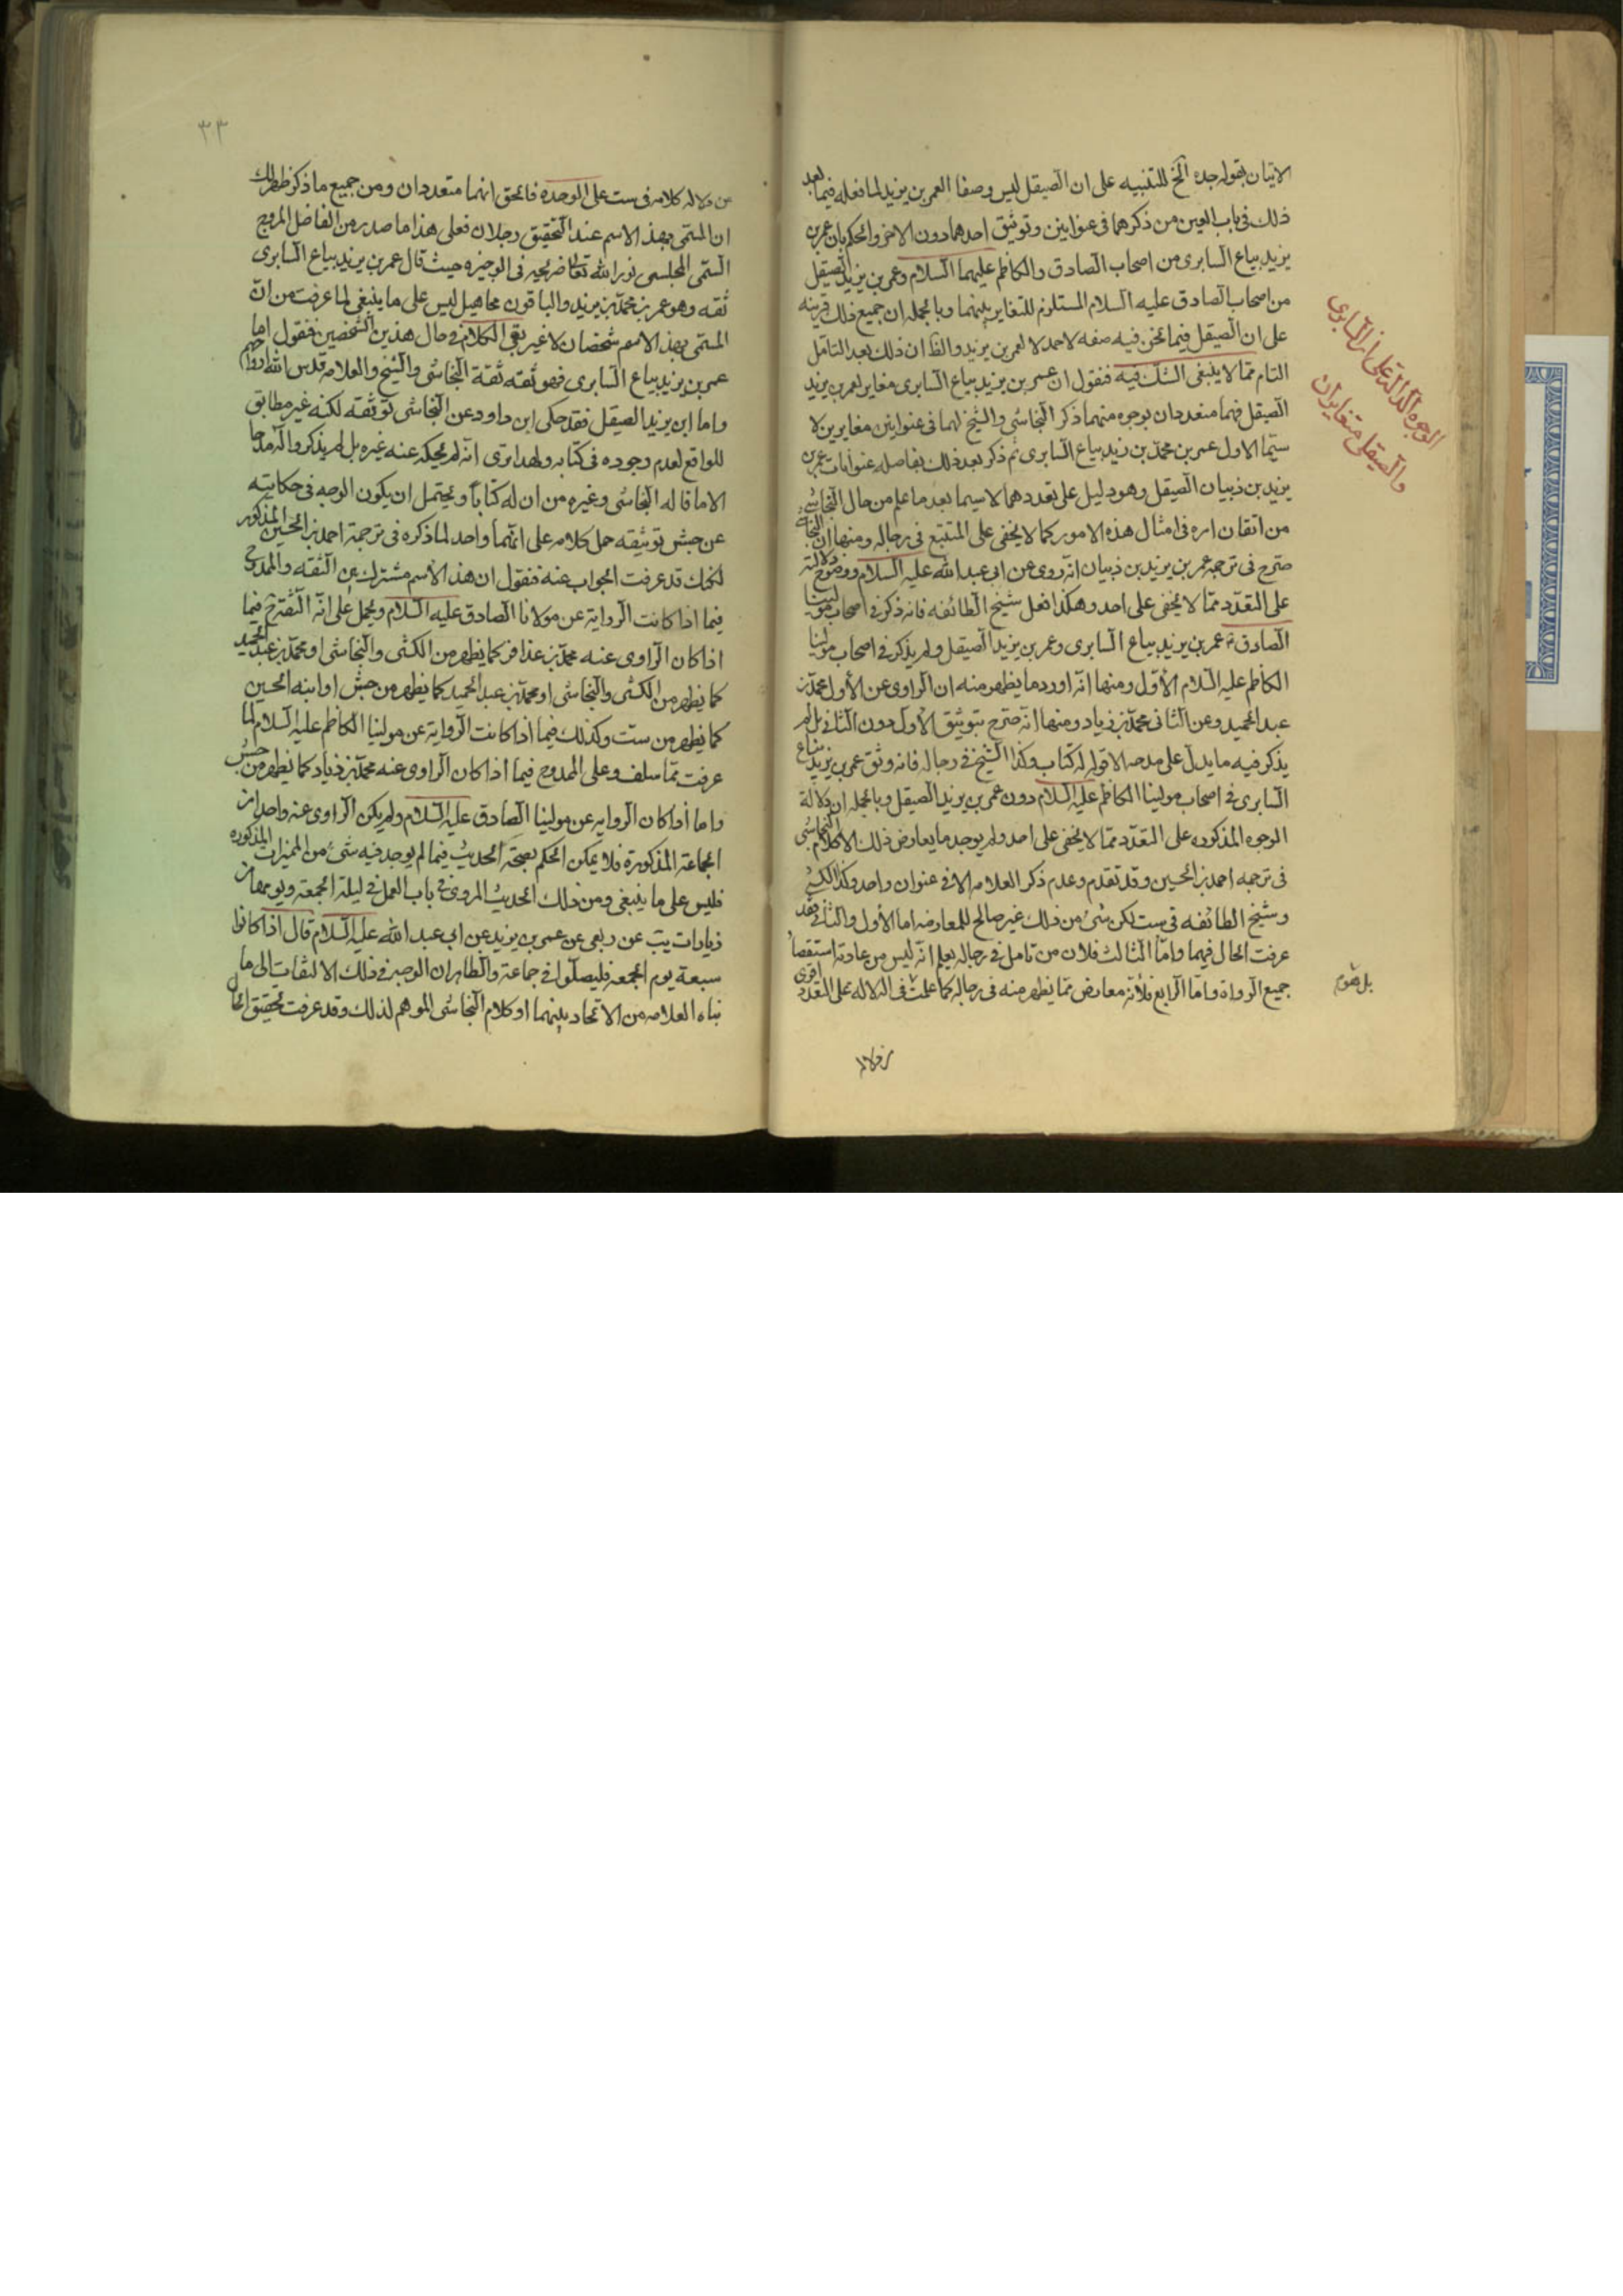 الاتيان بقوله جده الخ للتنبيه على ان الصيقل ليس وصفا لعمر بن يزيد لما فعله فيما بعد
ذلك فى باب العين من ذكرهما فى عنوانين وتوثيق احدهما دون الاخر والحكم بان عمر بن
يزيد بياع السابرى من اصحاب الصادق والكاظم عليهما السلام وعمر بن يزيد الصيقل
من اصحاب الصادق عليه السلام المستلزم للتغاير بينهما وبالجمله ان جميع ذلك قرينه
على ان الصيقل فيما نحن فيه صفه لاحمد لا لعمر بن يزيد والظ ان ذلك بعد التامل
التام ممّا لا ينبغى الشك فيه فنقول ان عمر بن يزيد بياع السابرى مغاير لعمر بن يزيد
الصيقل فهما متعددان بوجوه منهما ذكر النجاشى والشيخ لهما فى عنوانين مغايرين لا
سيّما الاول عمر بن محمد بن زيد بياع السابرى ثم ذكر بعد ذلك بفاصله عنوانات عمر بن
يزيد بن ذبيان الصيقل وهو دليل على تعددهما لا سيما بعد ما علم من حال النجاشى
من اتقان امره فى امثال هذه الامور كما لا يخفى على المتتبع فى رجاله ومنها ان النجاشى
صرّح فى ترجمه عمر بن يزيد بن ذبيان انه روى عن ابى عبد الله عليه السلام ووضوح دلالته
على التعدد ممّا لا يخفى على احد وهكذا فعل شيخ الطائفه فانه ذكر فى اصحاب مولينا
الصادق ع عمر بن يزيد بياع السابرى وعمر بن يزيد الصيقل ولم يذكر فى اصحاب مولينا
الكاظم عليه السلام الاول ومنها انّه اورد ما يظهر منه ان الراوى عن الاول محمد بن
عبد الحميد وعن الثانى محمد بن زياد ومنها انه صرح بتوثيق الاول دون الثانى بل لم
يذكر فيه ما يدل على مدحه الا قوله له كتاب وكذا الشيخ فى رجاله فانه وثق عمر بن يزيد بياع
السابرى فى اصحاب مولينا الكاظم عليه السلام دون عمر بن يزيد الصيقل وبالجمله ان دلالة
الوجوه المذكوره على التعدد ممّا لا يخفى على احد ولم يوجد ما يعارض ذلك الا كلام النجاشى
فى ترجمه احمد بن الحسين وقد تقدم وعدم ذكر العلامه الا فى عنوان واحد وكذا الكشى
وشيخ الطائفه فى ست لكن شئ من ذلك غير صالح للمعارضه اما الاول والثانى فقد
عرفت الحال فيهما وامّا الثالث فلان من تامل فى رجاله يعلم انّه ليس من عادته استقصاء
جميع الرواة وامّا الرابع فلأنه معارض ممّا يظهر منه فى رجاله كما علمت فى الدلاله على التعدد اقوى
الوجوه الدالة على ان السابرى
والصيقل متغايران
بل هو
من دلاله
٣٣
من دلاله كلامه فى ست على الوحده فالحق انهما متعددان ومن جميع ما ذكر ظهر لك
ان المسمّى بهذا الاسم عند التحقيق رجلان فعلى هذا ما صدر من الفاضل المروج
السمّى المجلسى نور الله تعالى ضريحه فى الوجيزه حيث قال عمر بن يزيد بياع السابرى
ثقه وهو عمر بن محمد بن يزيد والباقون مجاهيل ليس على ما ينبغى لما عرفت من انّ
المسمّى بهذا الاسم شخصان لا غير بقى الكلام فى حال هذين الشخصين فنقول اما
عمر بن يزيد بياع السابرى فهو ثقه ثقة النجاشى والشيخ والعلامه قدس الله ارواحهم
واما ابن يزيد الصيقل فقد حكى ابن داود عن النجاشى توثقه لكنه غير مطابق
للواقع لعدم وجوده فى كتابه ولهذا ترى انه لم يحكه عنه غيره بل لم يذكروا له مدحا
الا ما قاله النجاشى وغيره من ان له كتابا ويحتمل ان يكون الوجه فى حكايته
عن جش توثيقه حمل كلامه على انهما واحد لما ذكره فى ترجمة احمد بن الحسين المذكور
لكنك قد عرفت الجواب عنه فنقول ان هذا الاسم مشترك بين الثقه والممدوح
فيما اذا كانت الرواية عن مولانا الصادق عليه السلام ويحمل على انّه الثقه فيما
اذا كان الراوى عنه محمد بن عذافر كما يظهر من الكشى والنجاشى او محمد بن عبد الحميد
كما يظهر من الكشى والنجاشى او محمد بن عبد الحميد كما يظهر من جش او ابنه الحسين
كما يظهر من ست وكذلك فيما اذا كانت الرواية عن مولينا الكاظم عليه السلام لما
عرفت ممّا سلف وعلى الممدوح فيما اذا كان الراوى عنه محمد بن زياد كما يظهر من جش
واما اذا كان الروايه عن مولينا الصادق عليه السلام ولم يكن الراوى عنه واحدا من
الجماعة المذكورة فلا يمكن الحكم بصحة الحديث فيما لم يوجد فيه شئ من المميزات المذكوره
فليس على ما ينبغى ومن ذلك الحديث المروى فى باب العمل فى ليلة الجمعة ويومها من
زيادات يب عن ربعى عن عمر بن يزيد عن ابى عبد الله عليه السلام قال اذا كانوا
سبعة يوم الجمعه فليصلّوا فى جماعة والظاهر ان الوجه فى ذلك الالتفات الى ما
بناه العلامه من الاتحاد بينهما او كلام النجاشى الموهم لذلك وقد عرفت تحقيق الحال